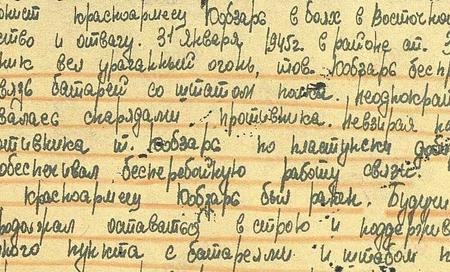 онист красноармеец Кобзарь в боях в Восточно
ство и отвагу. 31 января 1945г. в районе от.
ник вел ураганный огонь, тов. Кобзарь беспр
вязь батарей со штабом полка. неоднократ
валась снарядами противника. невзирая на
отивника т. Кобзарь по пластунски
обеспечивал бесперебойную работу связи.
красноармеец Кобзарь был ранен. Будучи
родолжал оставаться в строю и поддержив
ного пункта с батареями и штабом п